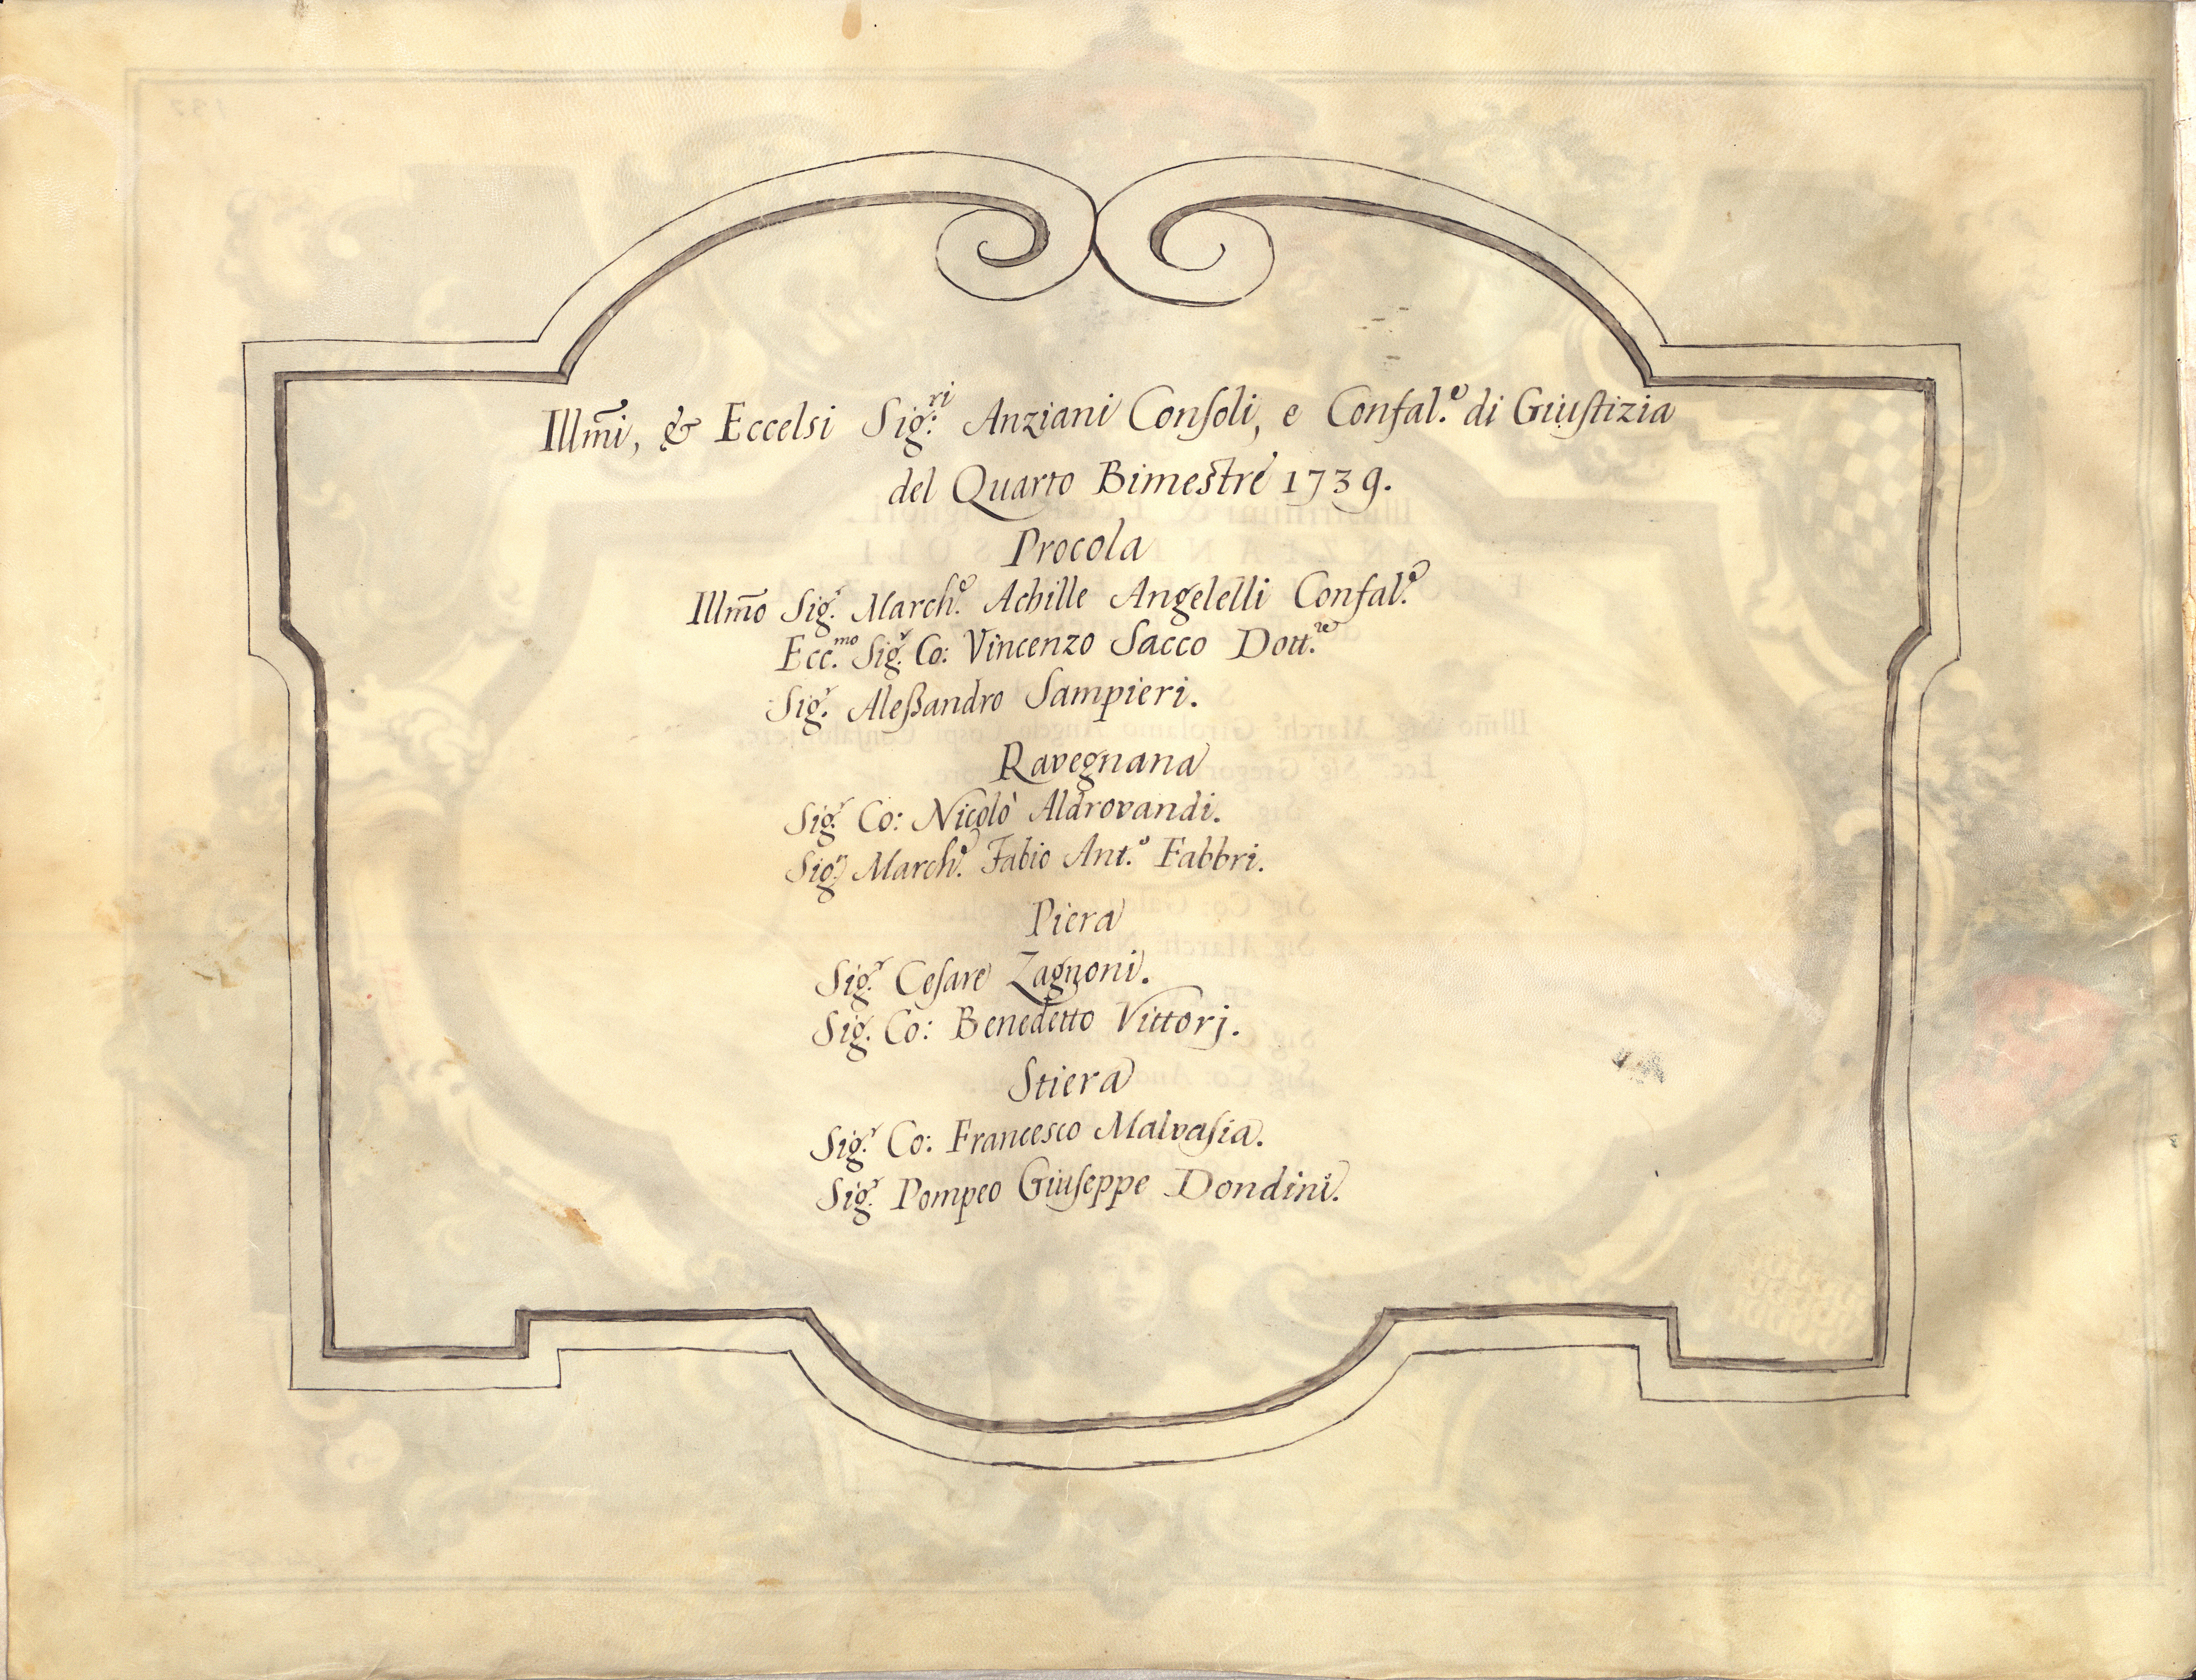 Illm̃i, & Eccelsi Sig:ri Anziani Conſoli, e Confal.e di Giuſtizia
del Quarto Bimestre 1739.
Procola
Illm̃o Sig.r March.e Achille Angelelli Confal.e
Ecc.mo Sig.r Co: Vincenzo Sacco Dott.re
Sig.r Aleſsandro Sampieri.
Ravegnana
Sig.r Co: Nicolò Aldrovandi.
Sig.r March.e Fabio Ant.o Fabbri.
Piera
Sig.r Ceſare Zagnoni.
Sig.r Co: Benedetto Vittorj.
Stiera
Sig.r Co: Francesco Malvaſia.
Sig.r Pompeo Giuſeppe Dondini.